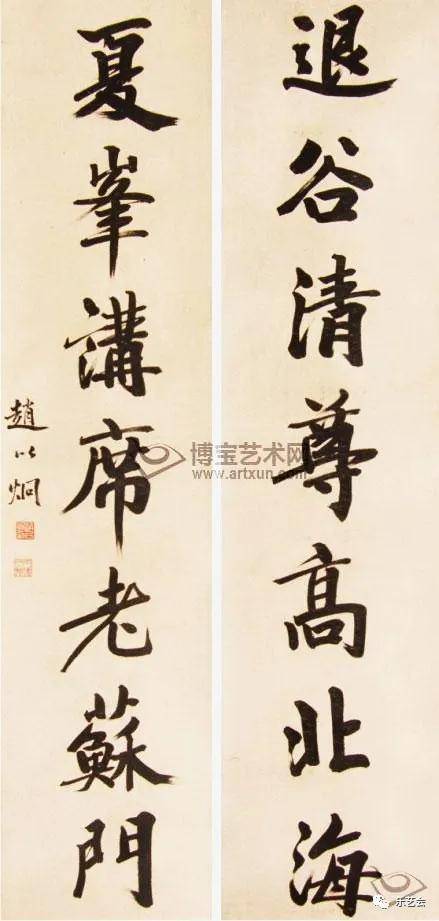 退谷清尊高北海
夏峯講席老蘇門
趙以炯
博宝艺术网
www.artxun.com
乐艺会